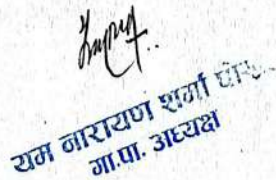 यम नारायण शर्मा
गा.पा. अध्यक्ष